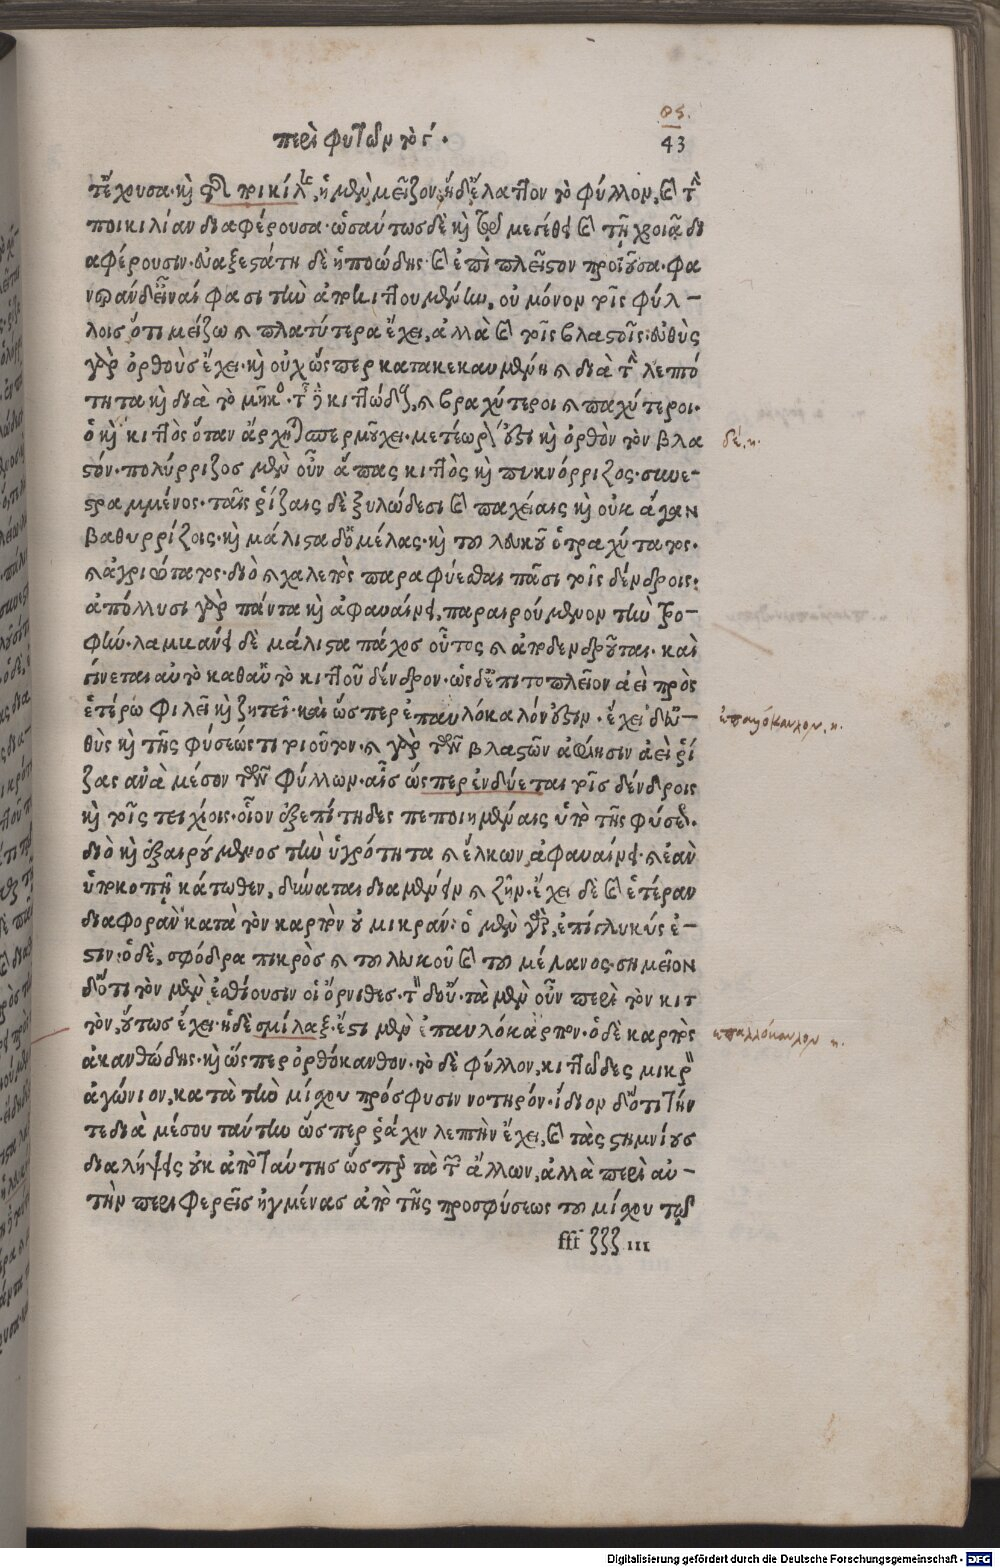 85.
περὶ φυτῶν τὸ γ΄.
43
τ᾽ ἔχουσα· καὶ ἡ ποικίλη, ἡ μὲν μεῖζον, ἡ δ᾽ ἔλαττον τὸ φύλλον, καὶ τὴν
ποικιλίαν διαφέρουσα· ὡσαύτως δὲ καὶ τῷ μεγέθει καὶ τῇ χροιᾷ δι
αφέρουσιν· δυαξεστάτη δὲ ἡ ποώδης· καὶ ἐπὶ πλεῖστον προϊοῦσα· φα
νερὰν δ᾽ εἶναί φασι τὴν ἀποκιττουμένην, οὐ μόνον τοῖς φύλ-
λοις ὅτι μείζω καὶ πλατύτερα ἔχει, ἀλλὰ καὶ τοῖς βλαστοῖς· εὐθὺς
γὰρ ὀρθοὺς ἔχει· καὶ οὐχ ὥσπερ κατακεκαυμένη καὶ διὰ τὴν λεπτό
τητα καὶ διὰ τὸ μῆκος· τῆς δὲ κιττώδους, καὶ βραχύτεροι καὶ παχύτεροι·
ὁ καὶ κιττὸς ὅταν ἄρχηται σπερμοῦχει· μετέωρον ἔχει καὶ ὀρθὸν τὸν βλα
στόν· πολύρριζος μὲν οὖν ἅπας κιττὸς καὶ πυκνόρριζος· συνε-
στραμμένος· ταῖς ῥίζαις δὲ ξυλώδεσι καὶ παχείαις καὶ οὐκ ἄγαν
βαθυρρίζοις· καὶ μάλιστα δ᾽ ὁ μέλας· καὶ τοῦ λευκοῦ ὁ τραχύτατος·
καὶ ἀγριώτατος· διὸ καὶ χαλεπὸς παραφύεσθαι πᾶσι τοῖς δένδροις·
ἀπόλλυσι γὰρ πάντα καὶ ἀφαυαίνει, παραιρούμενον τὴν τρο-
φήν· λαμβάνει δὲ μάλιστα πάχος οὗτος καὶ ἀποδενδροῦται· καὶ
γίνεται αὐτὸ καθ᾽ αὑτὸ κιττοῦ δένδρον· ὡς δ᾽ ἐπιτοπλεῖον ἀεὶ πρὸς
ἑτέρῳ φιλεῖ καὶ ζητεῖ· καὶ ὥσπερ ἐπαυλόκαλόν ἐστιν· ἔχει δ᾽ εὐ-
θὺς καὶ τῆς φύσεώς τι τοιοῦτον· καὶ γὰρ τῶν βλαστῶν ἀφίησιν ἀεὶ ῥί
ζας ἀνὰ μέσον τῶν φύλλων· αἷς ὥσπερ ἐνδύεται τοῖς δένδροις
καὶ τοῖς τειχίοις· οἷον ἐξεπίτηδες πεποιημέναις ὑπὸ τῆς φύσεως·
διὸ καὶ ἐξαιρούμενος τὴν ὑγρότητα καὶ ἕλκων ἀφαυαίνει· καὶ ἐὰν
ὑποκοπῇ κάτωθεν, δύναται διαμένειν καὶ ζῆν· ἔχει δὲ καὶ ἑτέραν
διαφορὰν κατὰ τὸν καρπὸν οὐ μικράν· ὁ μὲν γάρ, ἐπίγλυκύς ἐ-
στιν· ὁ δέ, σφόδρα πικρὸς καὶ τοῦ λευκοῦ καὶ τοῦ μέλανος· σημεῖον
δ᾽ ὅτι τὸν μὲν ἐσθίουσιν οἱ ὄρνιθες· τὸν δ᾽ οὔ· τὰ μὲν οὖν περὶ τὸν κιτ
τόν, οὕτως ἔχει· ἡ δὲ σμίλαξ· ἔστι μὲν ἐπαυλόκαρπον· ὁ δὲ καρπὸς
ἀκανθώδης· καὶ ὥσπερ ὀρθόκανθον· τὸ δὲ φύλλον, κιττῶδες μικρὸν
ἀγώνιον, κατὰ τὴν μίσχου πρόσφυσιν νοτηρόν· ἴδιον δ᾽ ὅτι τήν
τε διὰ μέσου ταύτην ὥσπερ ῥάχιν λεπτὴν ἔχει, καὶ τὰς στημνίους
διαλήψεις οὐκ ἀπὸ ταύτης ὥσπερ τὰ τῶν ἄλλων, ἀλλὰ περὶ αὐ-
τὴν περιφερεῖς ἠγμένας ἀπὸ τῆς προσφύσεως τοῦ μίσχου τῷ
fff ζζζ iii
δέ, κ.
ἐπαλλόκαυλον, κ.
ἐπαλλόκαυλον κ.
Digitalisierung gefördert durch die Deutsche Forschungsgemeinschaft - DFG